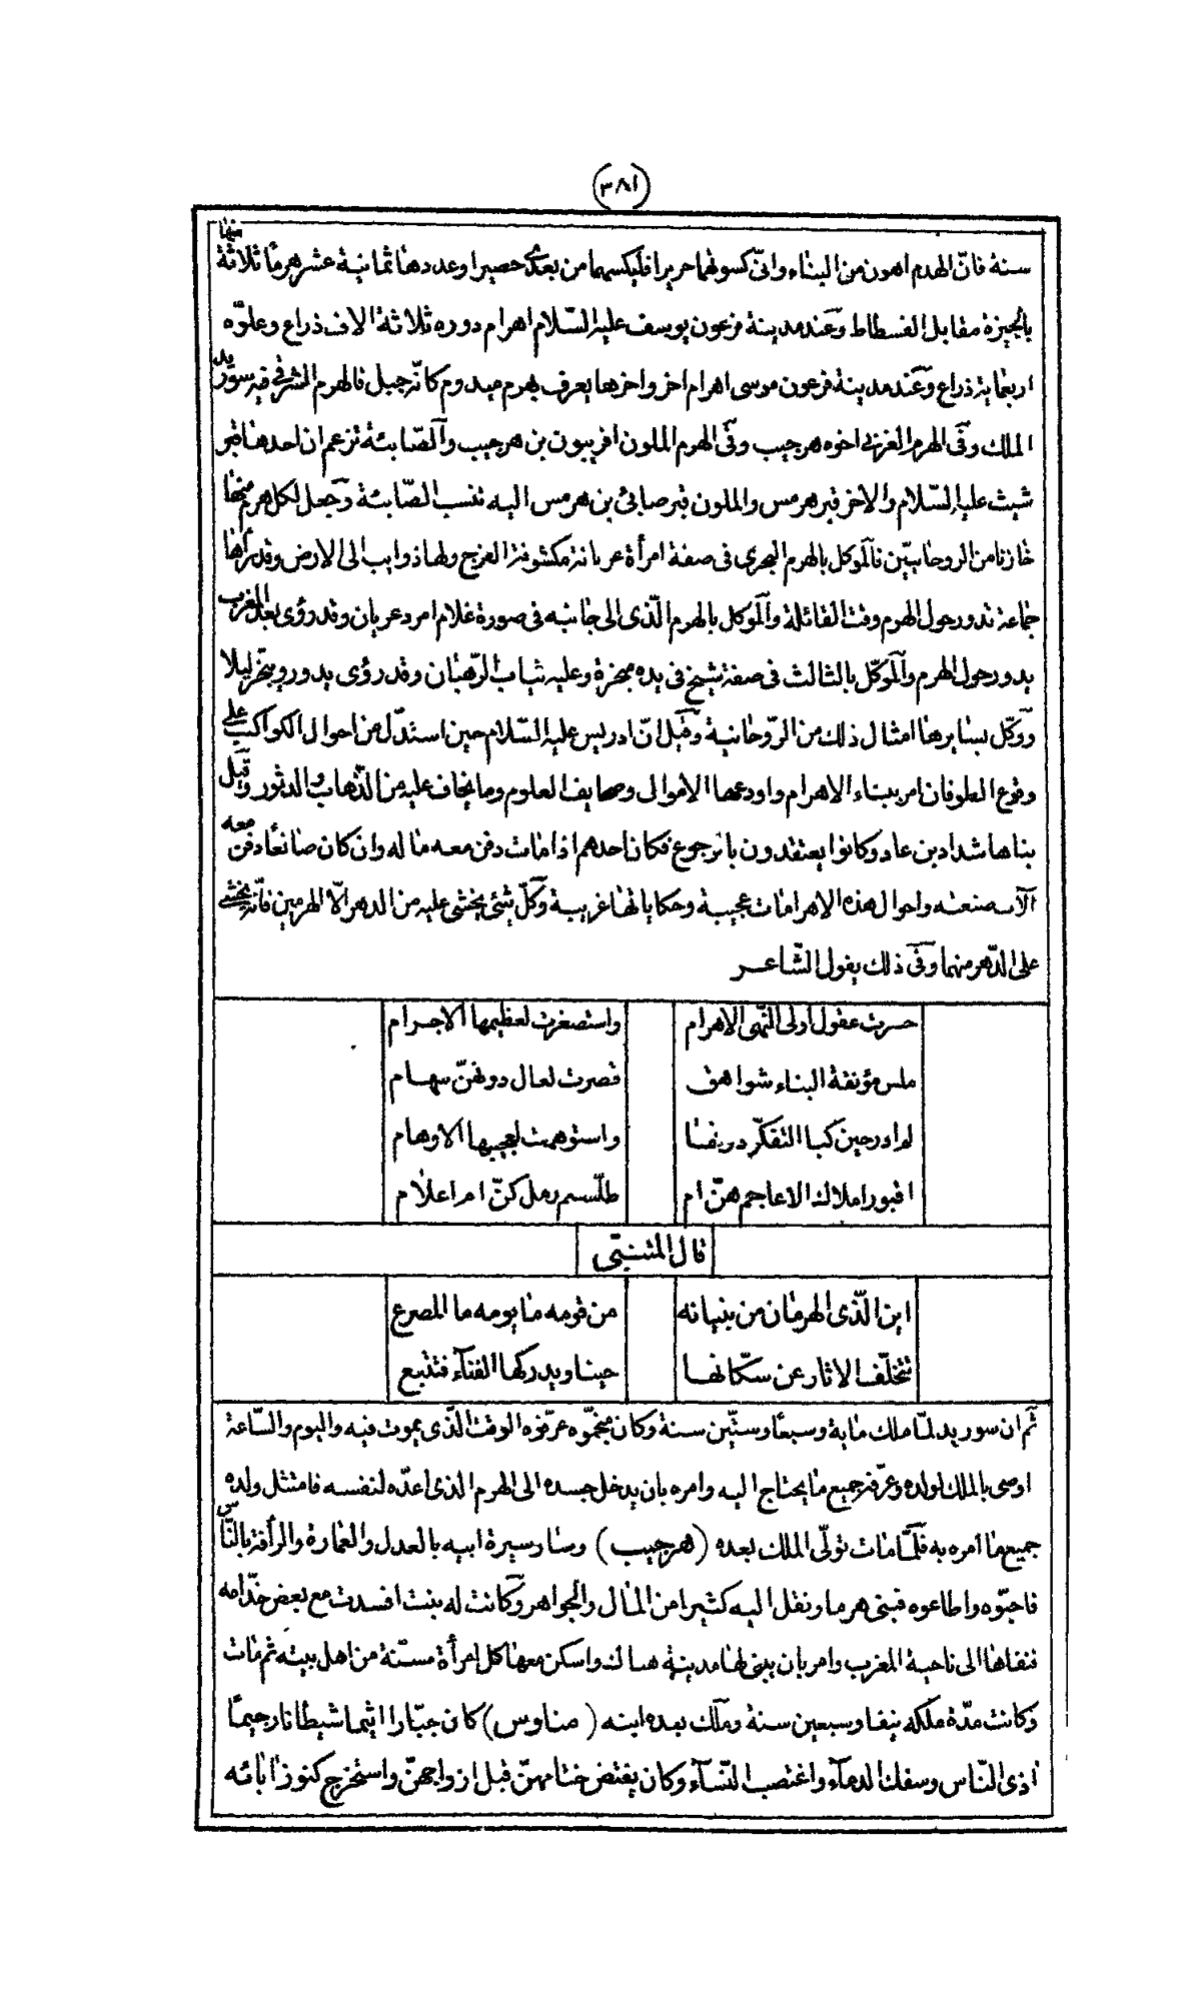 (٣٨١)
سنة فانّ الهدم اهون من البناء وانّى كسوتهما حريرا فليكسهما من بعدى حصيرا وعددها ثمانية عشر هرمًا ثلاثة منها
بالجيزة مقابل الفسطاط وعند مدينة فرعون يوسف عليه السّلام اهرام دوره ثلاثة الاف ذراع وعلوّه
اربعماية ذراع وعند مدينة فرعون موسى اهرام اخر واخرها يعرف بهرم ميدوم كانّه جبل فالهرم الشرقى فيه سوريد
الملك وفى الهرم الغربى اخوه هرجيب وفى الهرم الملون افريبون بن هرجيب والصّابئة تزعم ان احدهما قبر
شيث عليه السّلام والاخر قبر هرمس والملون قبر صابئ بن هرمس اليه تنسب الصّابئة وجعل لكل هرم منها
خازنا من الروحانيّين فالموكل بالهرم البحرى فى صفة امرأة عريانة مكشوفة الفرج ولها ذوايب الى الارض وقد رأها
جماعة تدور حول الهرم وقت القائلة والموكل بالهرم الّذى الى جانبه فى صورة غلام امرد عريان وقد رؤى بعد المغرب
يدور حول الهرم والموكّل بالثالث فى صفة شيخ فى يده مبخرة وعليه ثياب الرّهبان وقد رؤى يدور ويبخر ليلا
ووكّل بسايرها امثال ذلك من الرّوحانية وقيل انّ ادريس عليه السّلام حين استدّل من احوال الكواكب على
وقوع الطوفان امر ببناء الاهرام واودعها الاموال وصحايف العلوم وما يخاف عليه من الذّهاب والدثور وقيل
بناها شداد بن عاد وكانوا يعتقدون بالرجوع فكان احدهم اذا مات دفن معه ماله وان كان صانعًا دفن معه
آلات صنعته واحوال هذه الاهرامات عجيبة وحكاياتها غريبة وكلّ شئ يخشى عليه من الدهر الّا الهرمين فانّه يخشى
على الدّهر منهما وفى ذلك يقول الشّاعر
حسرت عقول اولى النّهى الاهرام واستصغرت لعظيمها الاجرام
ملس مؤنقة البناء شواهق قصرت لعال دونهنّ سهام
لم ادر حين كبا التفكّر دونها واستوهمت لعجيبها الاوهام
اقبور املاك الاعاجم هنّ ام طلّسم رمل كنّ ام اعلام
قال المتنبّى
اين الّذى الهرمان من بنيانه من قومه ما يومه ما المصرع
تتخلّف الاثار عن سكّانها حينا ويدركها الفنآء فتتبع
ثم ان سوريد لمّا ملك ماية وسبعًا وستّين سنة وكان منجّموه عرّفوه الوقت الّذى يموت فيه واليوم والسّاعة
اوصى بالملك لولده وعرّفه جميع ما يحتاج اليه وامره بان يدخل جسده الى الهرم الذى اعدّه لنفسه فامتثل ولده
جميع ما امره به فلمّا مات تولّى الملك بعده (هرجيب) وسار سيرة ابيه بالعدل والعمارة والرأفة بالنّاس
فاحبّوه واطاعوه فبنى هرما ونقل اليه كثيرا من المال والجواهر وكانت له بنت افسدت مع بعض خدّامه
فنفاها الى ناحية المغرب وامر بان يبنى لها مدينة هناك واسكن معها كل امرأة مسنّة من اهل بيته ثم مات
وكانت مدّة ملكه نيفا وسبعين سنة وملك بعده ابنه (مناوس) كان جبّارا اثيما شيطانا رجيمًا
اذى النّاس وسفك الدمآء واغتصب النّسآء وكان يفتض ختامهنّ قبل ازواجهنّ واستخرج كنوز ابائه